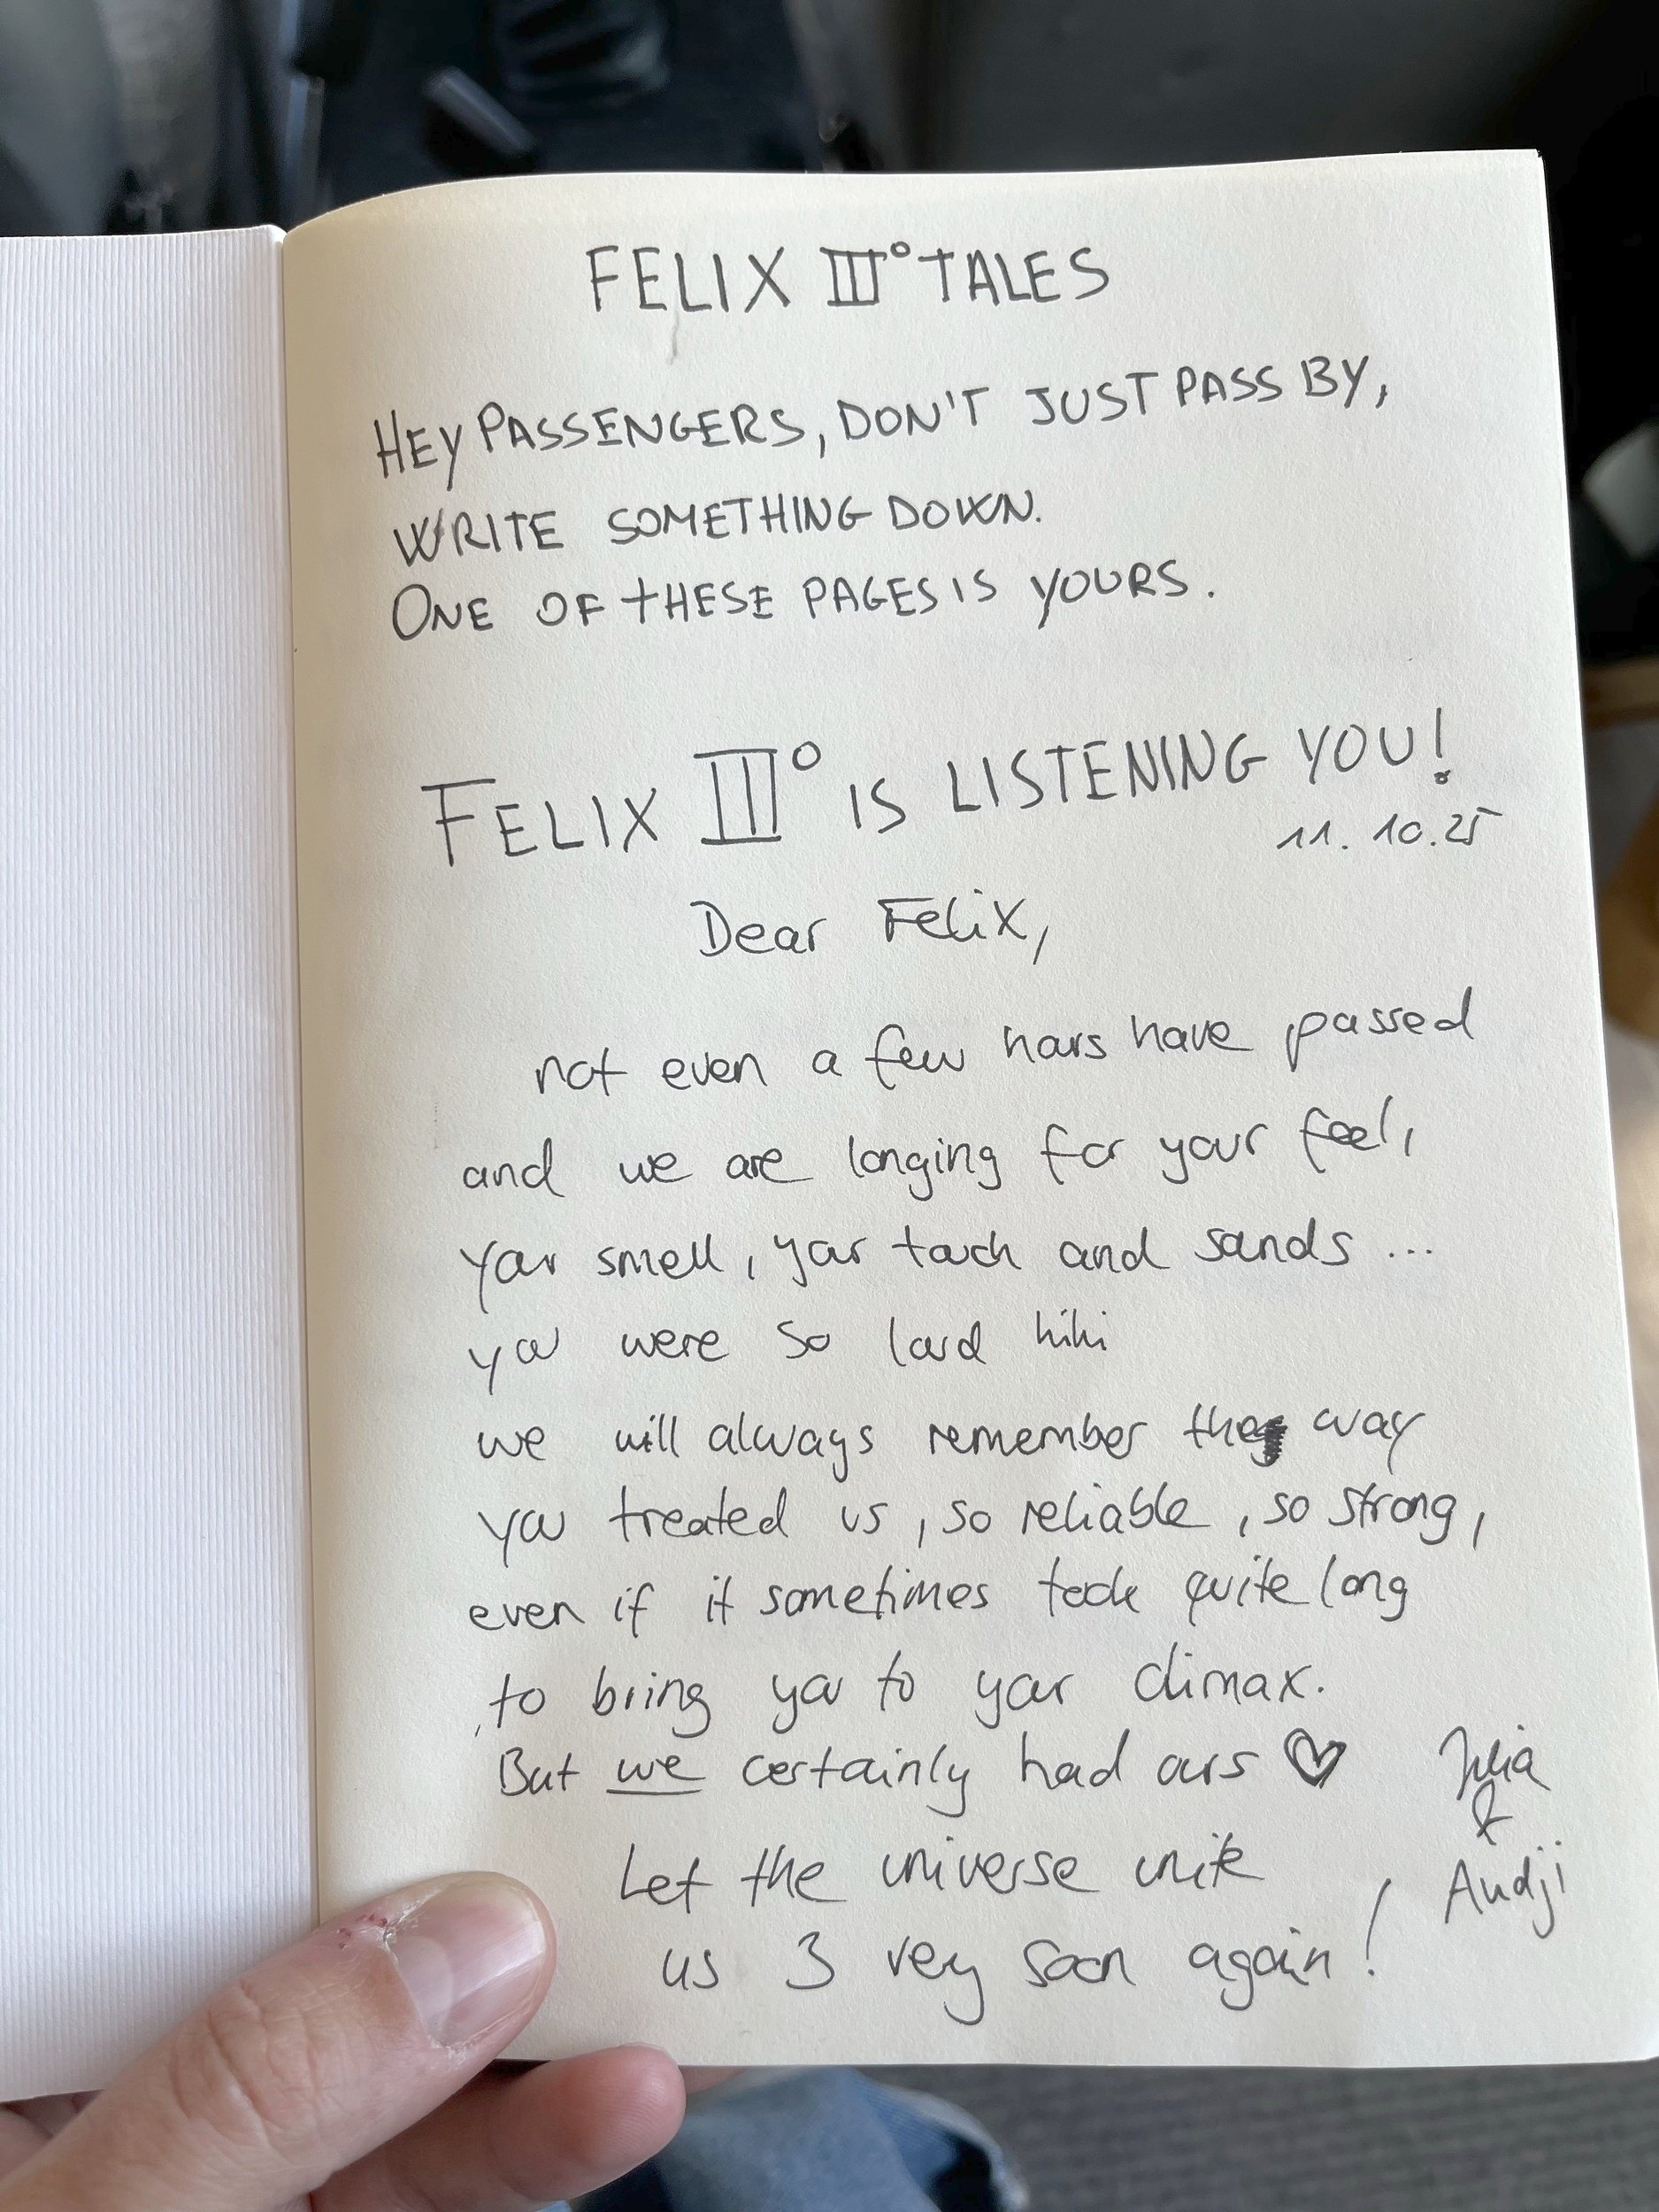 FELIX III° TALES
HEY PASSENGERS, DON'T JUST PASS BY,
WRITE SOMETHING DOWN.
ONE OF THESE PAGES IS YOURS.
FELIX III° IS LISTENING YOU!
11. 10.25
Dear Felix,
not even a few hours have passed
and we are longing for your feel,
your smell, your touch and sounds ...
you were so loud hihi
we will always remember the way
you treated us, so reliable, so strong,
even if it sometimes took quite long
to bring you to your climax.
But we certainly had ours ♡
Let the universe unite
us 3 very soon again!
Julia
&
Andji